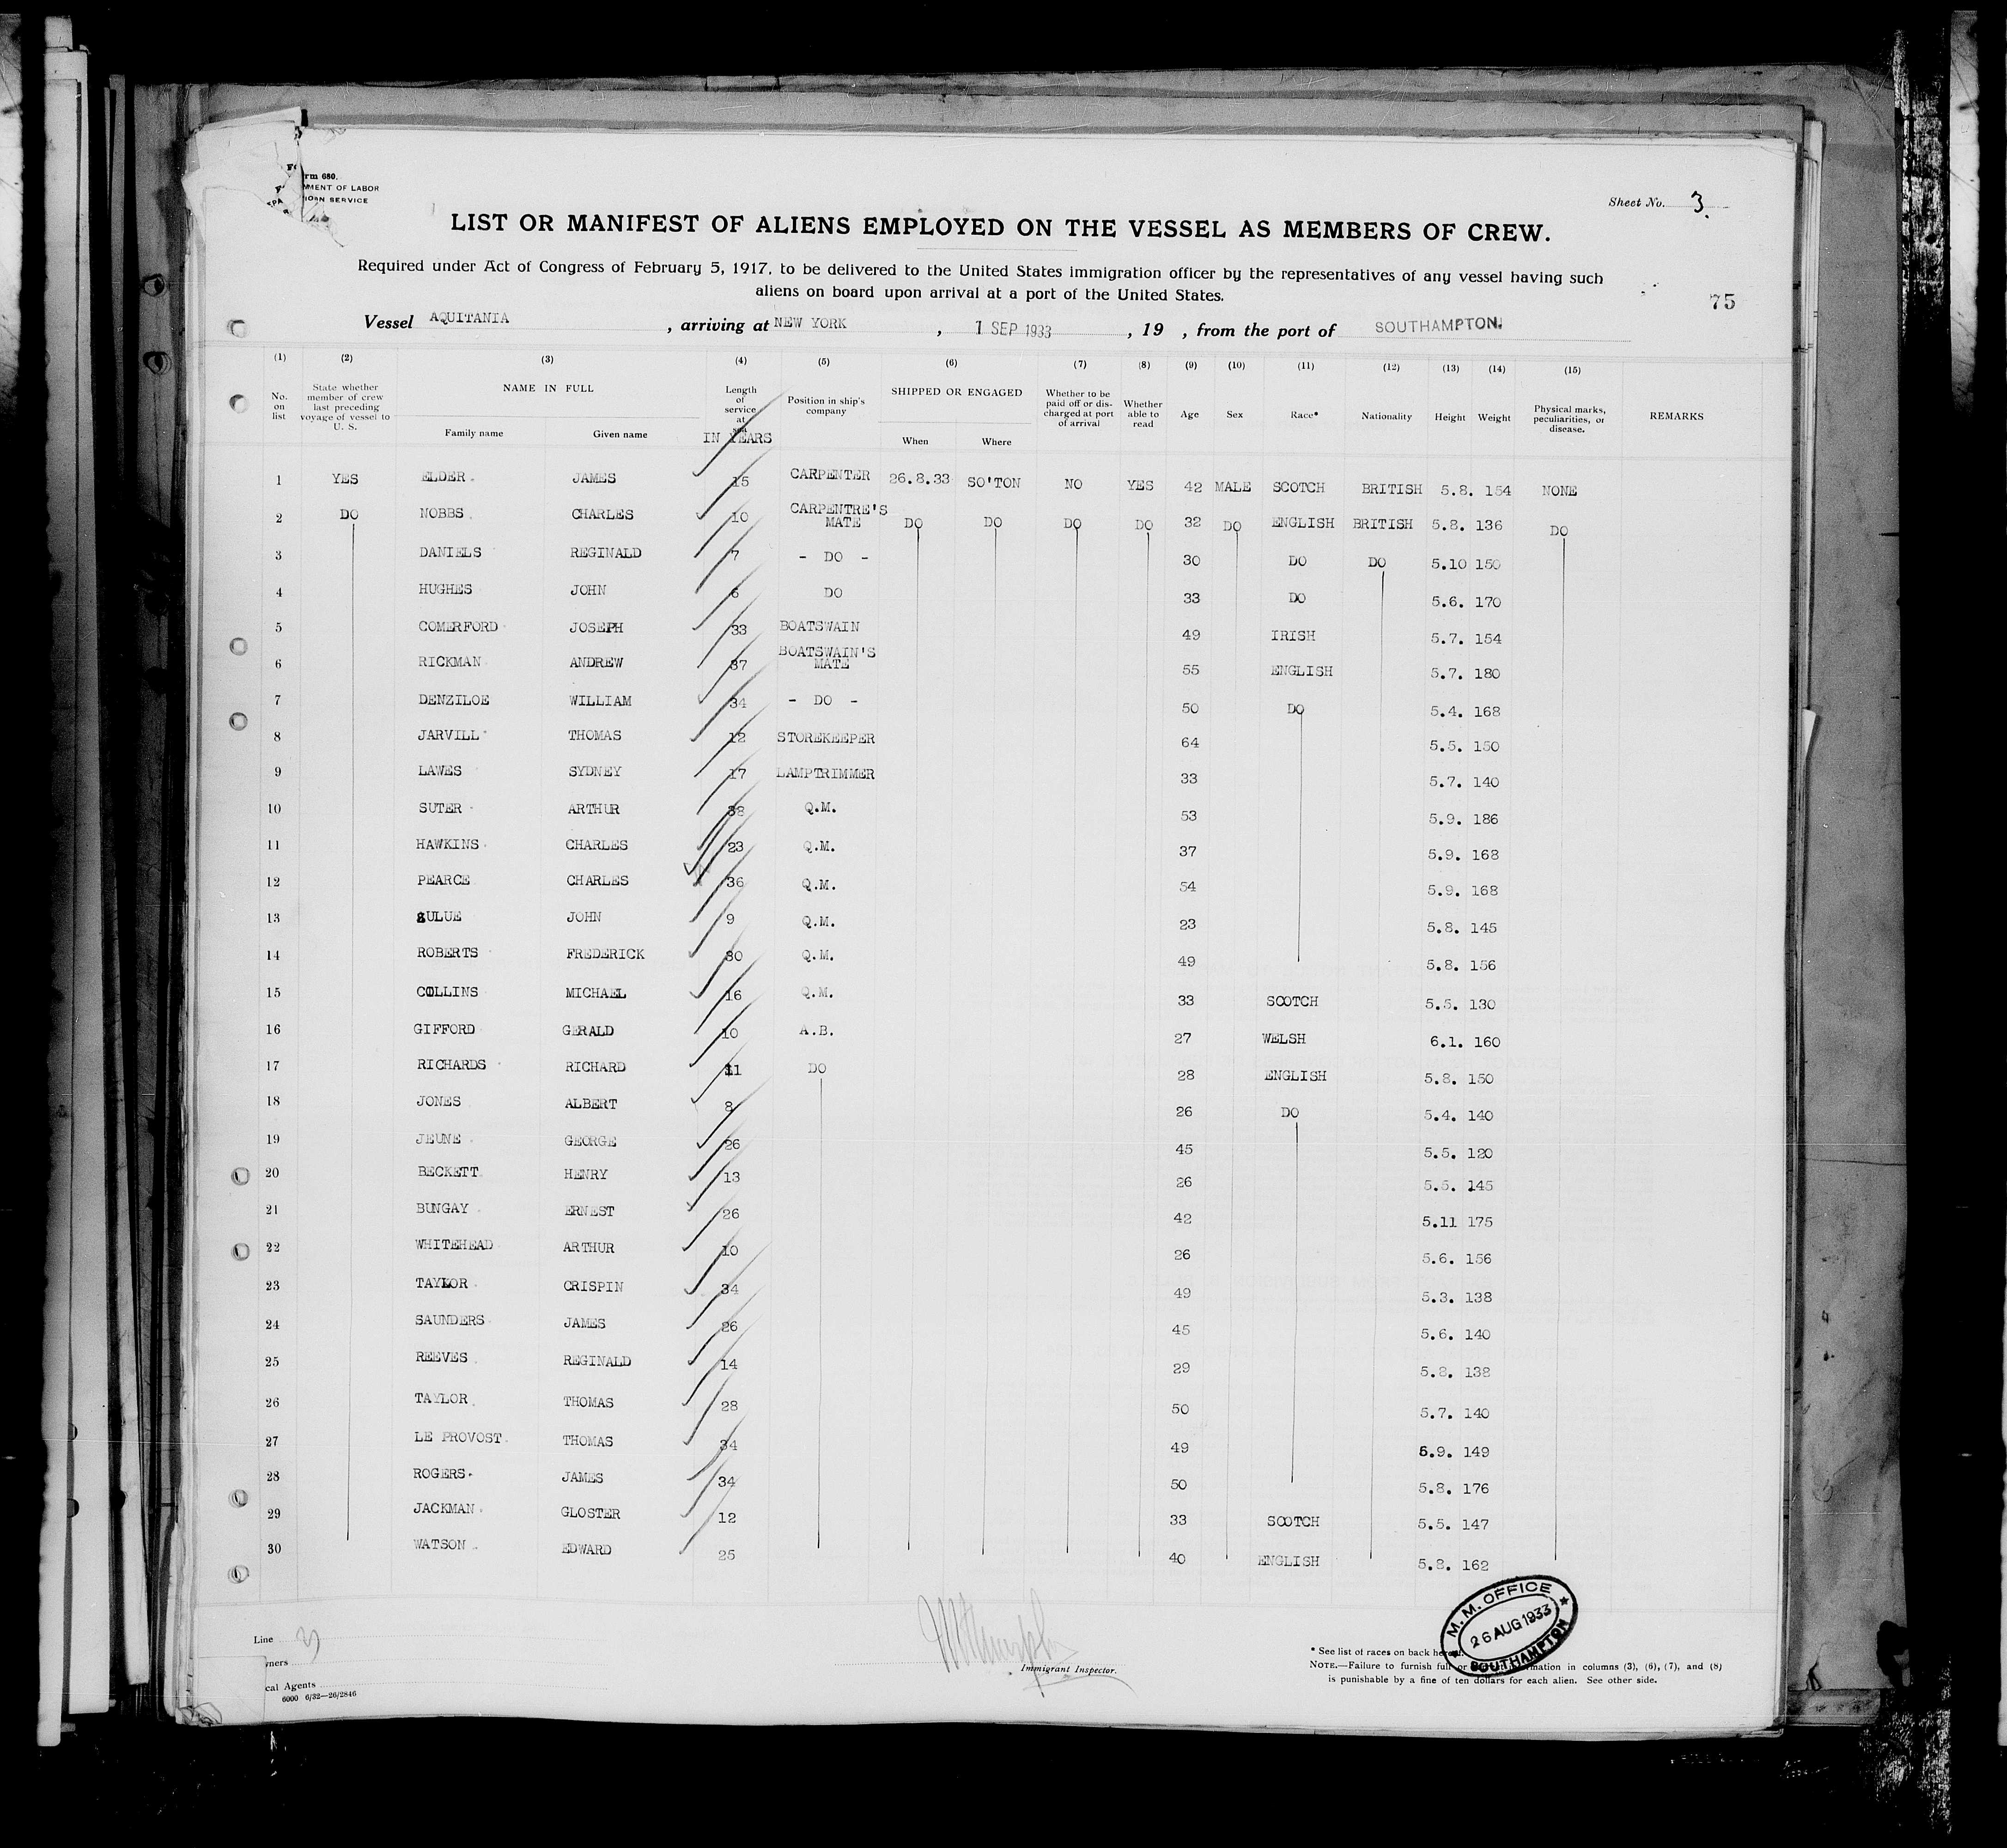 Form 680.
MENT OF LABOR
ION SERVICE
Sheet No. 3.
LIST OR MANIFEST OF ALIENS EMPLOYED ON THE VESSEL AS MEMBERS OF CREW.
Required under Act of Congress of February 5, 1917, to be delivered to the United States immigration officer by the representatives of any vessel having such
aliens on board upon arrival at a port of the United States.
75
Vessel AQUITANIA , arriving at NEW YORK , 1 SEP 1933 , 19 , from the port of SOUTHAMPTON.
(1) (2) (3) (4) (5) (6) (7) (8) (9) (10) (11) (12) (13) (14) (15)
No. on list State whether member of crew last preceding voyage of vessel to U. S. NAME IN FULL Family name Given name Length of service at sea IN YEARS Position in ship's company SHIPPED OR ENGAGED When Where Whether to be paid off or discharged at port of arrival Whether able to read Age Sex Race* Nationality Height Weight Physical marks, peculiarities, or disease. REMARKS
1 YES ELDER JAMES 15 CARPENTER 26.8.33 SO'TON NO YES 42 MALE SCOTCH BRITISH 5.8. 154 NONE
2 DO NOBBS CHARLES 10 CARPENTRE'S MATE DO DO DO DO 32 DO ENGLISH BRITISH 5.8. 136 DO
3 DANIELS REGINALD 7 - DO - 30 DO DO 5.10 150
4 HUGHES JOHN 6 DO 33 DO 5.6. 170
5 COMERFORD JOSEPH 33 BOATSWAIN 49 IRISH 5.7. 154
6 RICKMAN ANDREW 37 BOATSWAIN'S MATE 55 ENGLISH 5.7. 180
7 DENZILOE WILLIAM 34 - DO - 50 DO 5.4. 168
8 JARVILL THOMAS 12 STOREKEEPER 64 5.5. 150
9 LAWES SYDNEY 17 LAMPTRIMMER 33 5.7. 140
10 SUTER ARTHUR 38 Q.M. 53 5.9. 186
11 HAWKINS CHARLES 23 Q.M. 37 5.9. 168
12 PEARCE CHARLES 36 Q.M. 54 5.9. 168
13 SULUE JOHN 9 Q.M. 23 5.8. 145
14 ROBERTS FREDERICK 30 Q.M. 49 5.8. 156
15 COLLINS MICHAEL 16 Q.M. 33 SCOTCH 5.5. 130
16 GIFFORD GERALD 10 A.B. 27 WELSH 6.1. 160
17 RICHARDS RICHARD 11 DO 28 ENGLISH 5.8. 150
18 JONES ALBERT 8 26 DO 5.4. 140
19 JEUNE GEORGE 26 45 5.5. 120
20 BECKETT HENRY 13 26 5.5. 145
21 BUNGAY ERNEST 26 42 5.11 175
22 WHITEHEAD ARTHUR 10 26 5.6. 156
23 TAYLOR CRISPIN 34 49 5.3. 138
24 SAUNDERS JAMES 26 45 5.6. 140
25 REEVES REGINALD 14 29 5.8. 138
26 TAYLOR THOMAS 28 50 5.7. 140
27 LE PROVOST THOMAS 34 49 5.9. 149
28 ROGERS JAMES 34 50 5.8. 176
29 JACKMAN GLOSTER 12 33 SCOTCH 5.5. 147
30 WATSON EDWARD 25 40 ENGLISH 5.8. 162
M. M. OFFICE
26 AUG 1933
SOUTHAMPTON
Line
ners
cal Agents
6000 6/32—26/2846
Immigrant Inspector.
* See list of races on back
NOTE.—Failure to furnish full or information in columns (3), (6), (7), and (8)
is punishable by a fine of ten dollars for each alien. See other side.